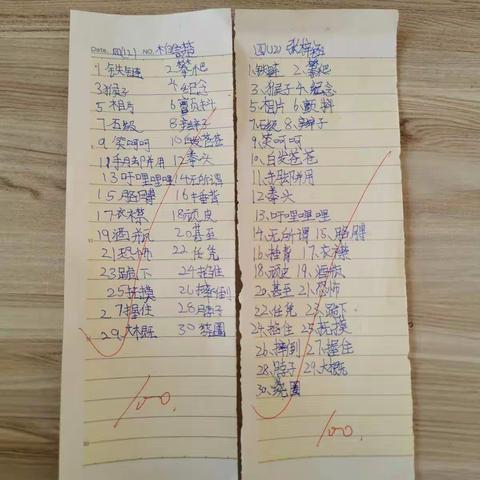 Date. 四(12) NO.
1.铁链 2.攀爬
3.猴子 4.纪念
5.相片 6.颤抖
7.石级 8.辫子
9.笑呵呵 10.白发苍苍
11.手脚并用 12.拳头
13.呼哩哩哩 14.无所谓
15.胳膊 16.捶背
17.衣襟 18.顽皮
19.洒 20.甚至
21.恐怖 22.任凭
23.蹲下 24.掐住
25.抚摸 26.摔倒
27.握住 28.脖子
29.大概 30.绕圈
100.
四(12) 张梓涵
1.铁链 2.攀爬
3.猴子 4.纪念
5.相片 6.颤抖
7.石级 8.辫子
9.笑呵呵
10.白发苍苍
11.手脚并用
12.拳头
13.呼哩哩哩
14.无所谓 15.胳膊
16.捶背 17.衣襟
18.顽皮 19.洒
20.甚至 21.恐怖
22.任凭 23.蹲下
24.掐住 25.抚摸
26.摔倒 27.握住
28.脖子 29.大概
30.绕圈
100.